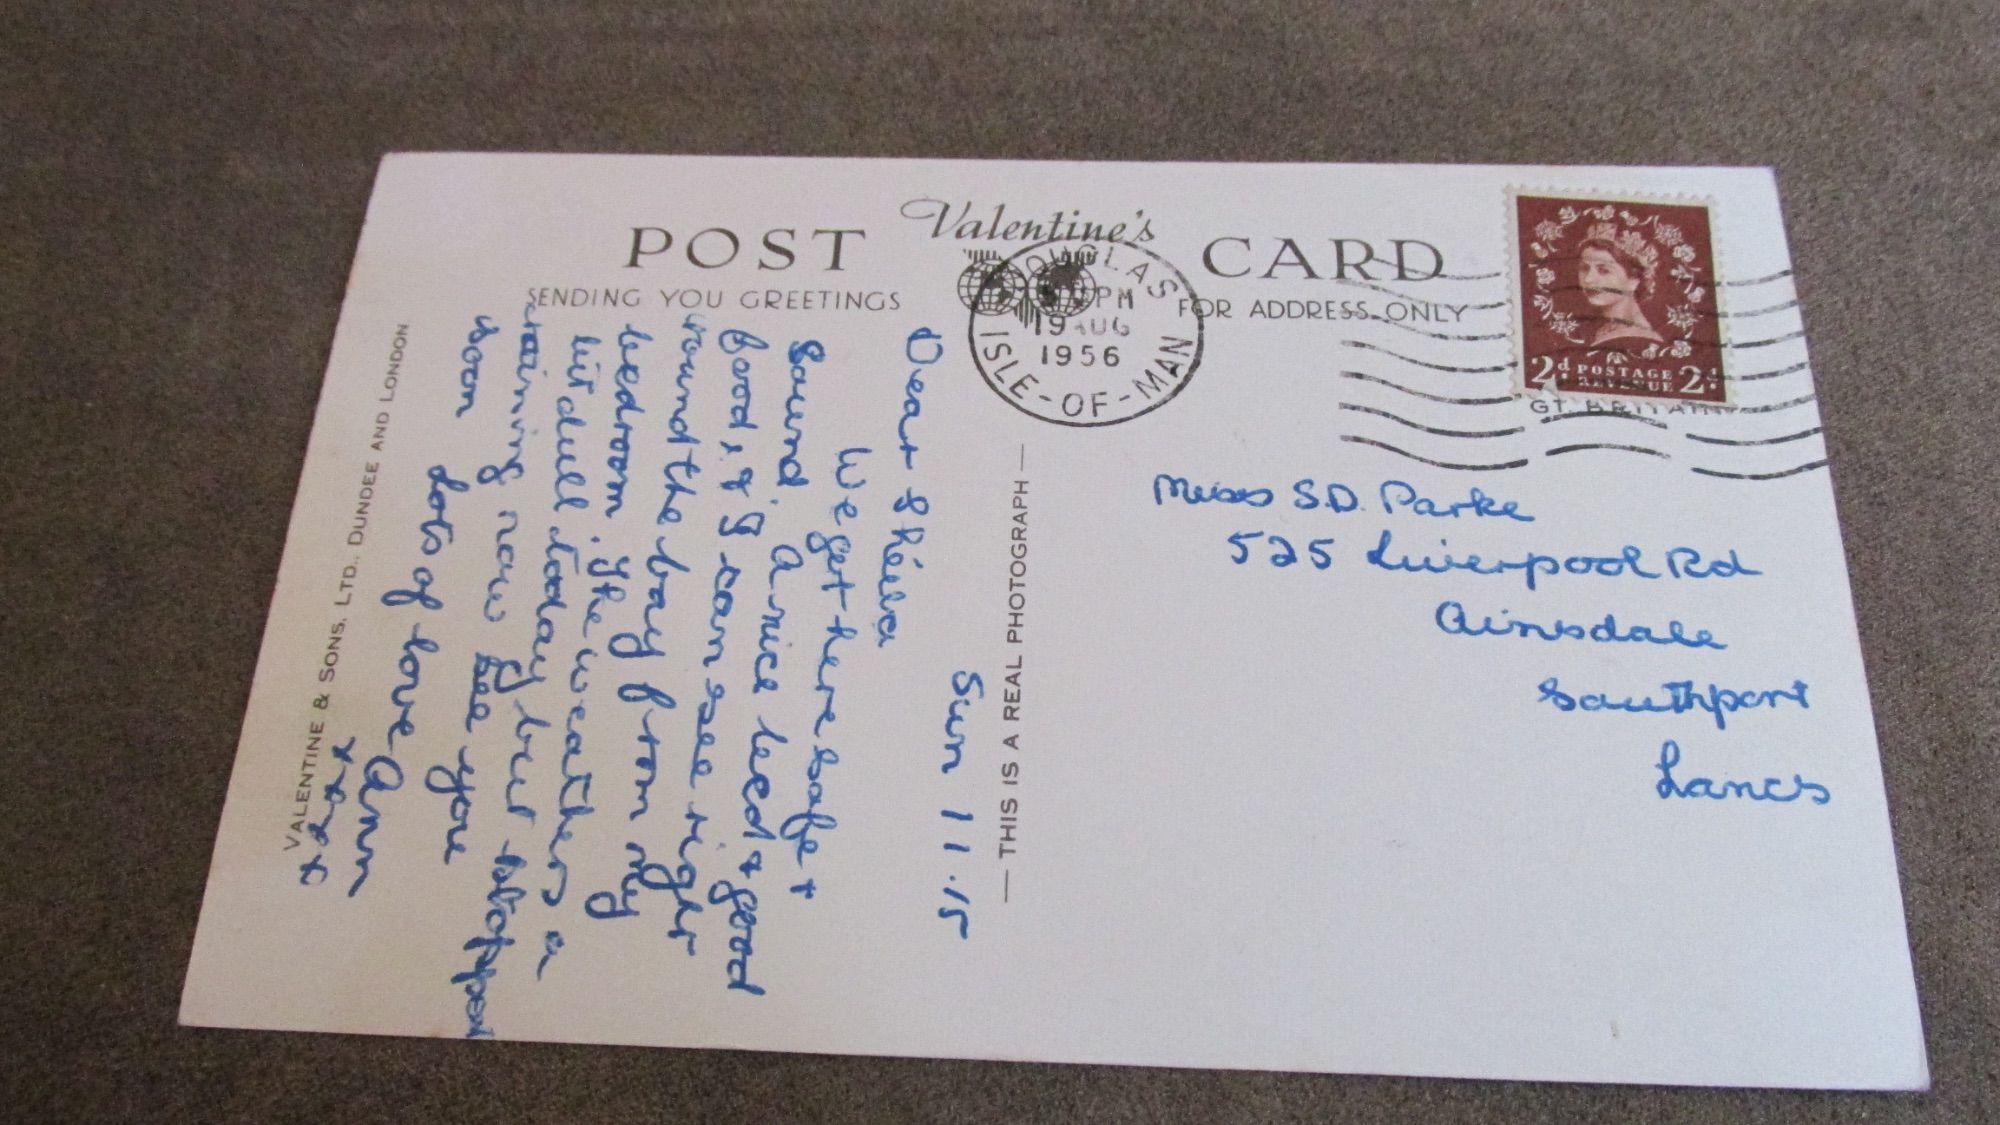 Valentine's
POST CARD
SENDING YOU GREETINGS
FOR ADDRESS ONLY
DOUGLAS
PM
19 AUG
1956
ISLE-OF-MAN
2d POSTAGE 2d
REVENUE
GT. BRITAIN
Sun 11.15
Dear Sheila
We got here safe +
Sound. A nice bed & good
food, & I can see right
round the bay from my
bedroom. The weathers a
bit dull today but stopped
raining now see you
soon
Lots of love Ann
x x x x
THIS IS A REAL PHOTOGRAPH
VALENTINE & SONS, LTD., DUNDEE AND LONDON
Miss S.D. Parke
525 Liverpool Rd
Ainsdale
Southport
Lancs